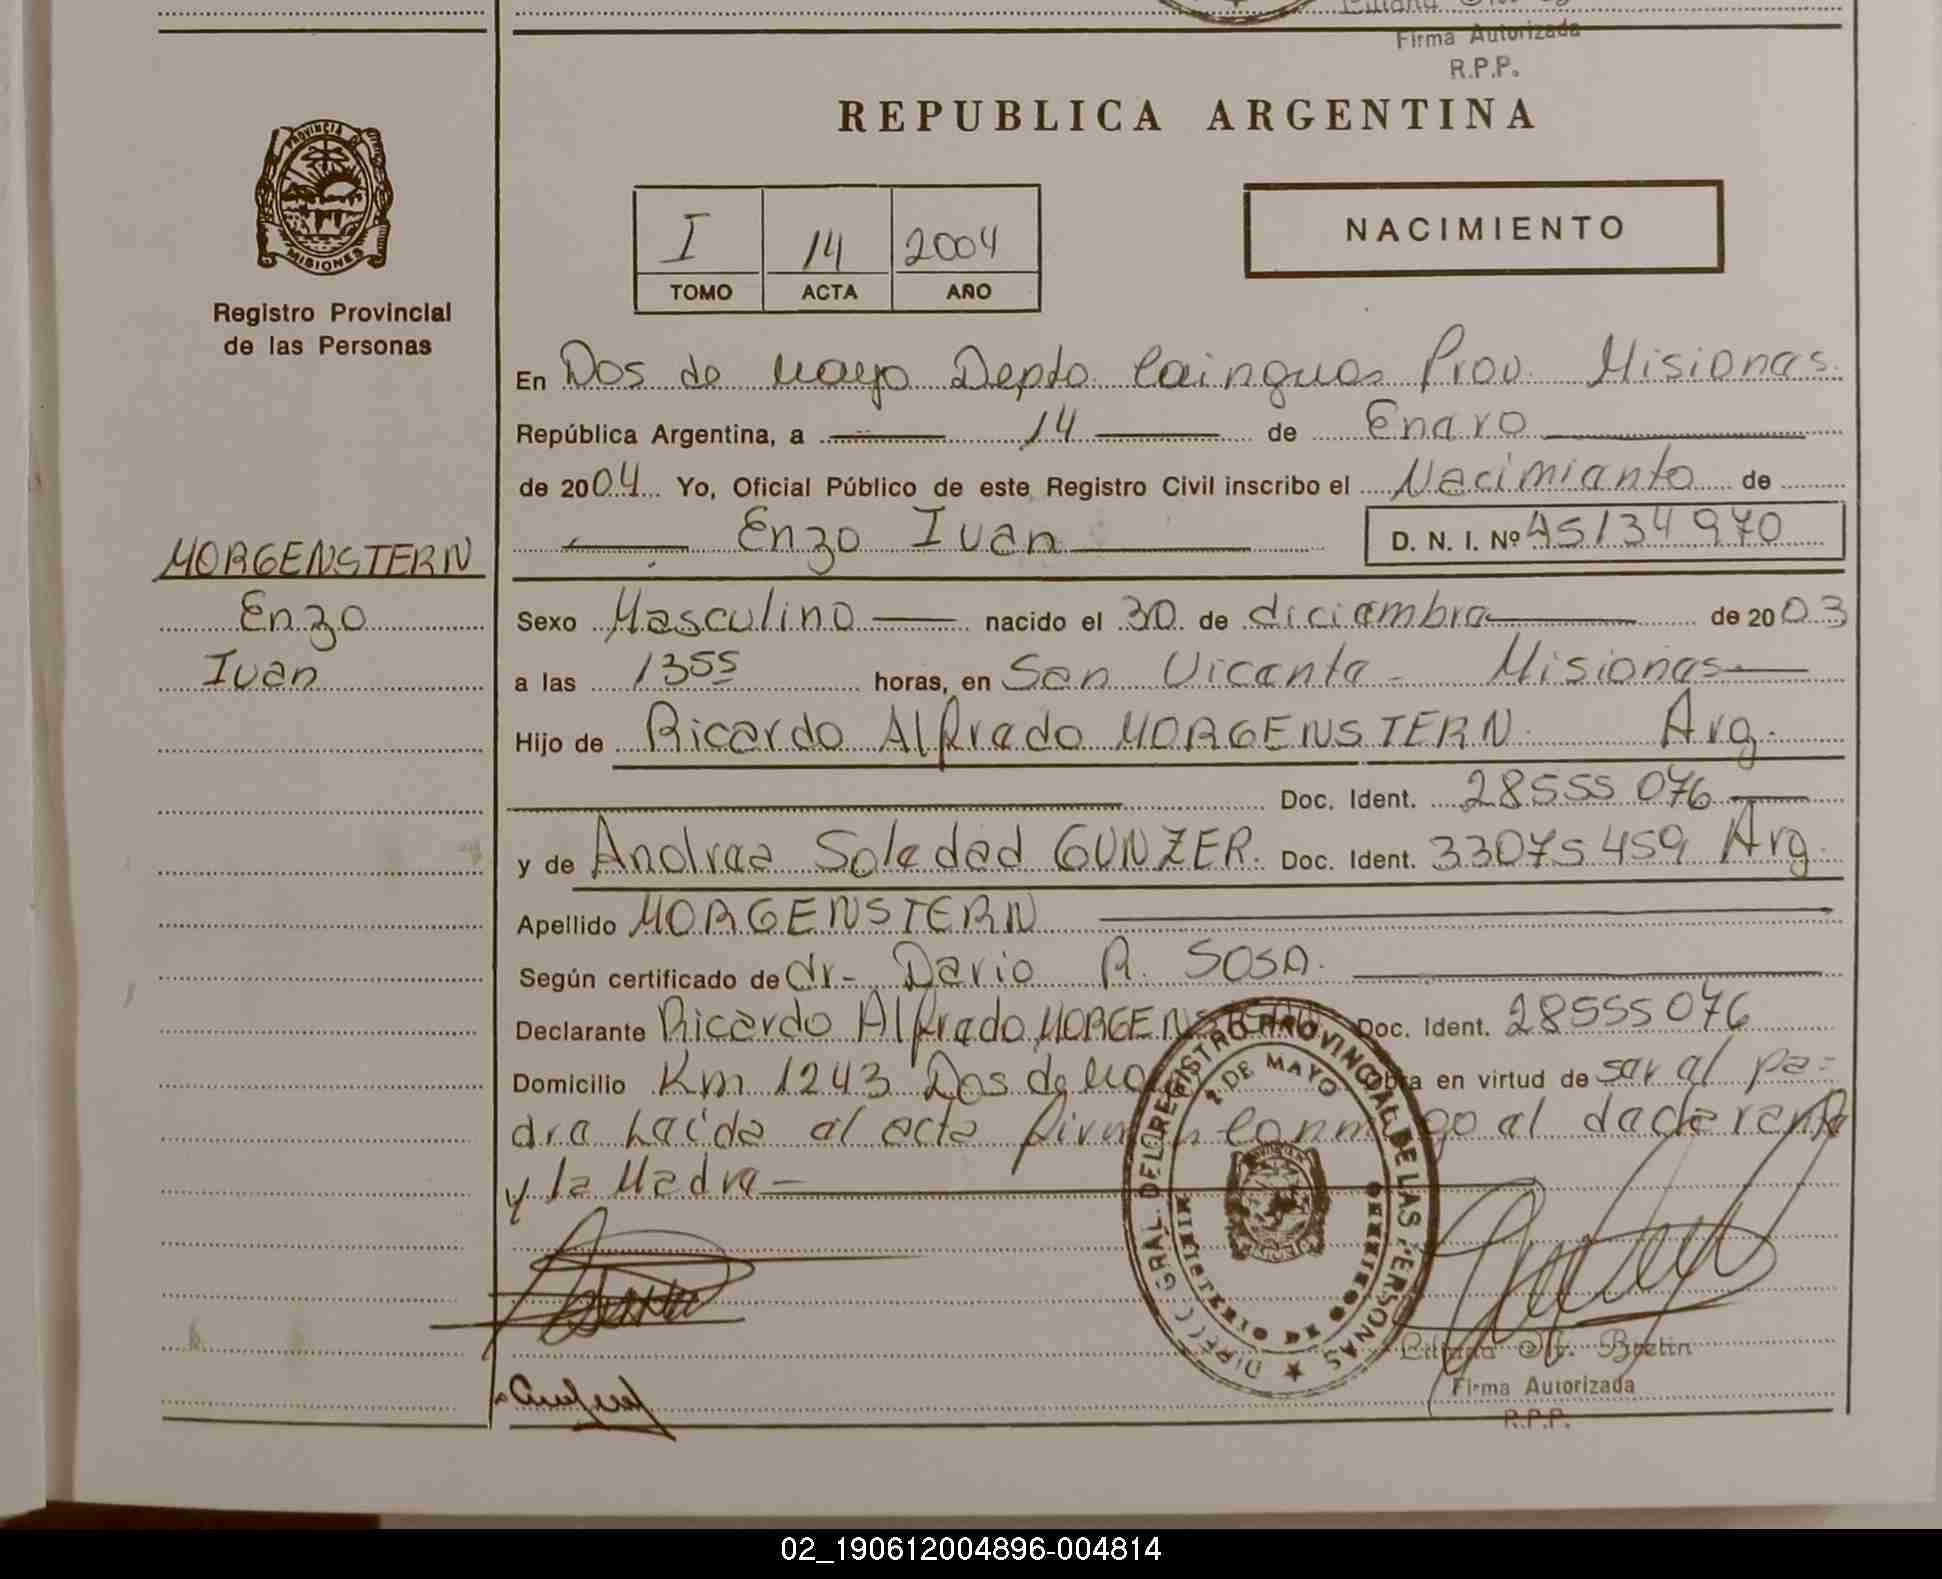 Firma Autorizada
R.P.P.
REPUBLICA ARGENTINA
PROVINCIA D
MISIONES
Registro Provincial
de las Personas
I 14 2004
TOMO ACTA AÑO
NACIMIENTO
En Dos de Mayo Depto Cainguas Prov. Misiones.
República Argentina, a 14 de Enero
de 2004 Yo, Oficial Público de este Registro Civil inscribo el Nacimiento de
Enzo Ivan D. N. I. Nº 45134970
MORGENSTERN
Enzo
Ivan
Sexo Masculino nacido el 30 de diciembre de 2003
a las 13 55 horas, en San Vicente - Misiones
Hijo de Ricardo Alfredo MORGENSTERN. Arg.
Doc. Ident. 28555 076
y de Andrea Soledad GUNZER. Doc. Ident. 33075459 Arg.
Apellido MORGENSTERN
Según certificado de dr- Dario R. SOSA.
Declarante Ricardo Alfredo MORGENSTERN Doc. Ident. 28555076
Domicilio Km 1243 Dos de Mayo Obra en virtud de ser el pa-
dre Leída el acta firman conmigo el declarante
y la Madre -
DIRECC GRAL. DEL REGISTRO PROVINCIAL DE LAS PERSONAS
2 DE MAYO
Liliana Bretin
Firma Autorizada
R.P.P.
02_190612004896-004814